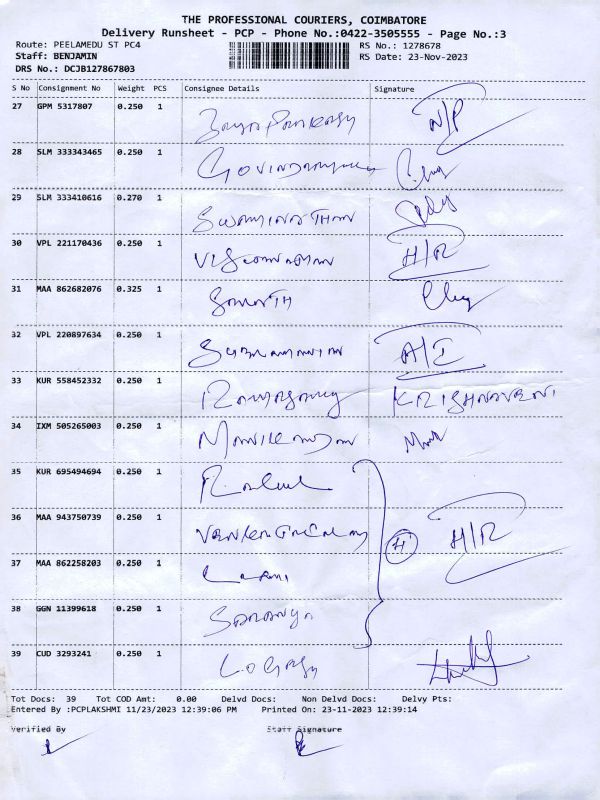 THE PROFESSIONAL COURIERS, COIMBATORE
Delivery Runsheet - PCP - Phone No.:0422-3505555 - Page No.:3
Route: PEELAMEDU ST PC4 RS No.: 1278678
Staff: BENJAMIN RS Date: 23-Nov-2023
DRS No.: DCJB127867803
S No Consignment No Weight PCS Consignee Details Signature
27 GPM 5317807 0.250 1 N/P
28 SLM 333343465 0.250 1
29 SLM 333410616 0.270 1 SWAMINATHAN
30 VPL 221170436 0.250 1 H/R
31 MAA 862682076 0.325 1
32 VPL 220897634 0.250 1
33 KUR 558452332 0.250 1 KRISHNAVENI
34 IXM 505265003 0.250 1 MANIKANDAN
35 KUR 695494694 0.250 1
36 MAA 943750739 0.250 1 (H) H/R
37 MAA 862258203 0.250 1
38 GGN 11399618 0.250 1 SARANYA
39 CUD 3293241 0.250 1
Tot Docs: 39 Tot COD Amt: 0.00 Delvd Docs: Non Delvd Docs: Delvy Pts:
Entered By :PCPLAKSHMI 11/23/2023 12:39:06 PM Printed On: 23-11-2023 12:39:14
Verified By Staff Signature